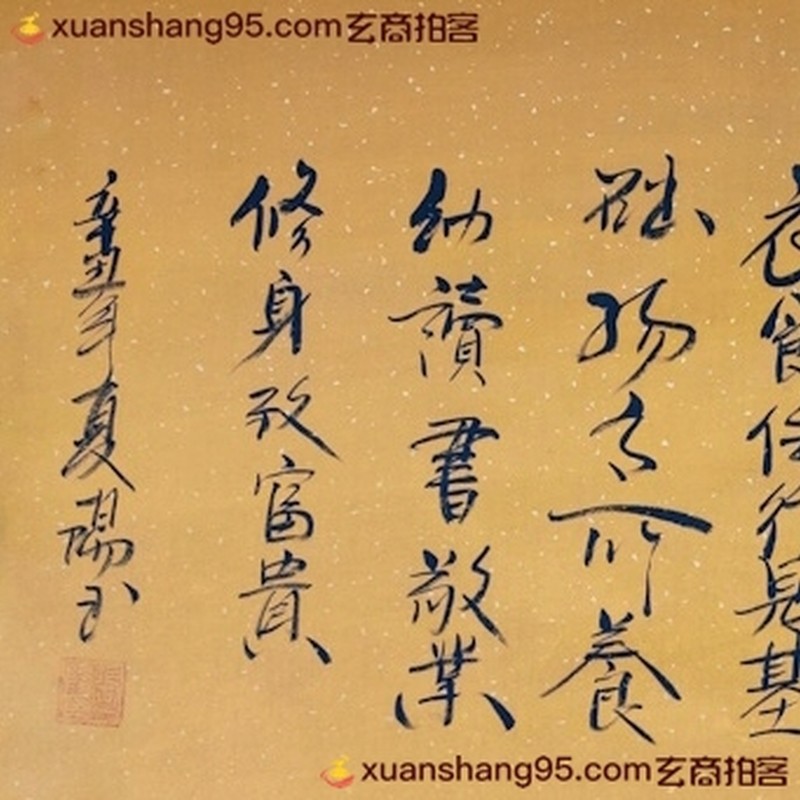 xuanshang95.com玄商拍客
衣食住行是基
所養
幼讀書敬業
修身致富貴
辛丑年夏陽玉
xuanshang95.com玄商拍客